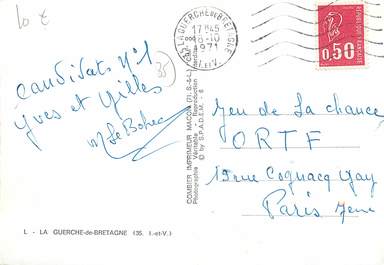 10 €
35 LA GUERCHE-DE-BRETAGNE
17H45
8-10
1971
I.-et-V.
RÉPUBLIQUE FRANÇAISE
0,50
candidats N°1
35
Yves et Gilles
M Le Bohec
Jeu de la chance
ORTF
rue Cognacq Jay
Paris 7eme
COMBIER IMPRIMEUR MACON (71. S.-&-L.)
Photographie Véritable - Reproduction
© by S.P.A.D.E.M.
L - LA GUERCHE-de-BRETAGNE (35. I.-et-V.)